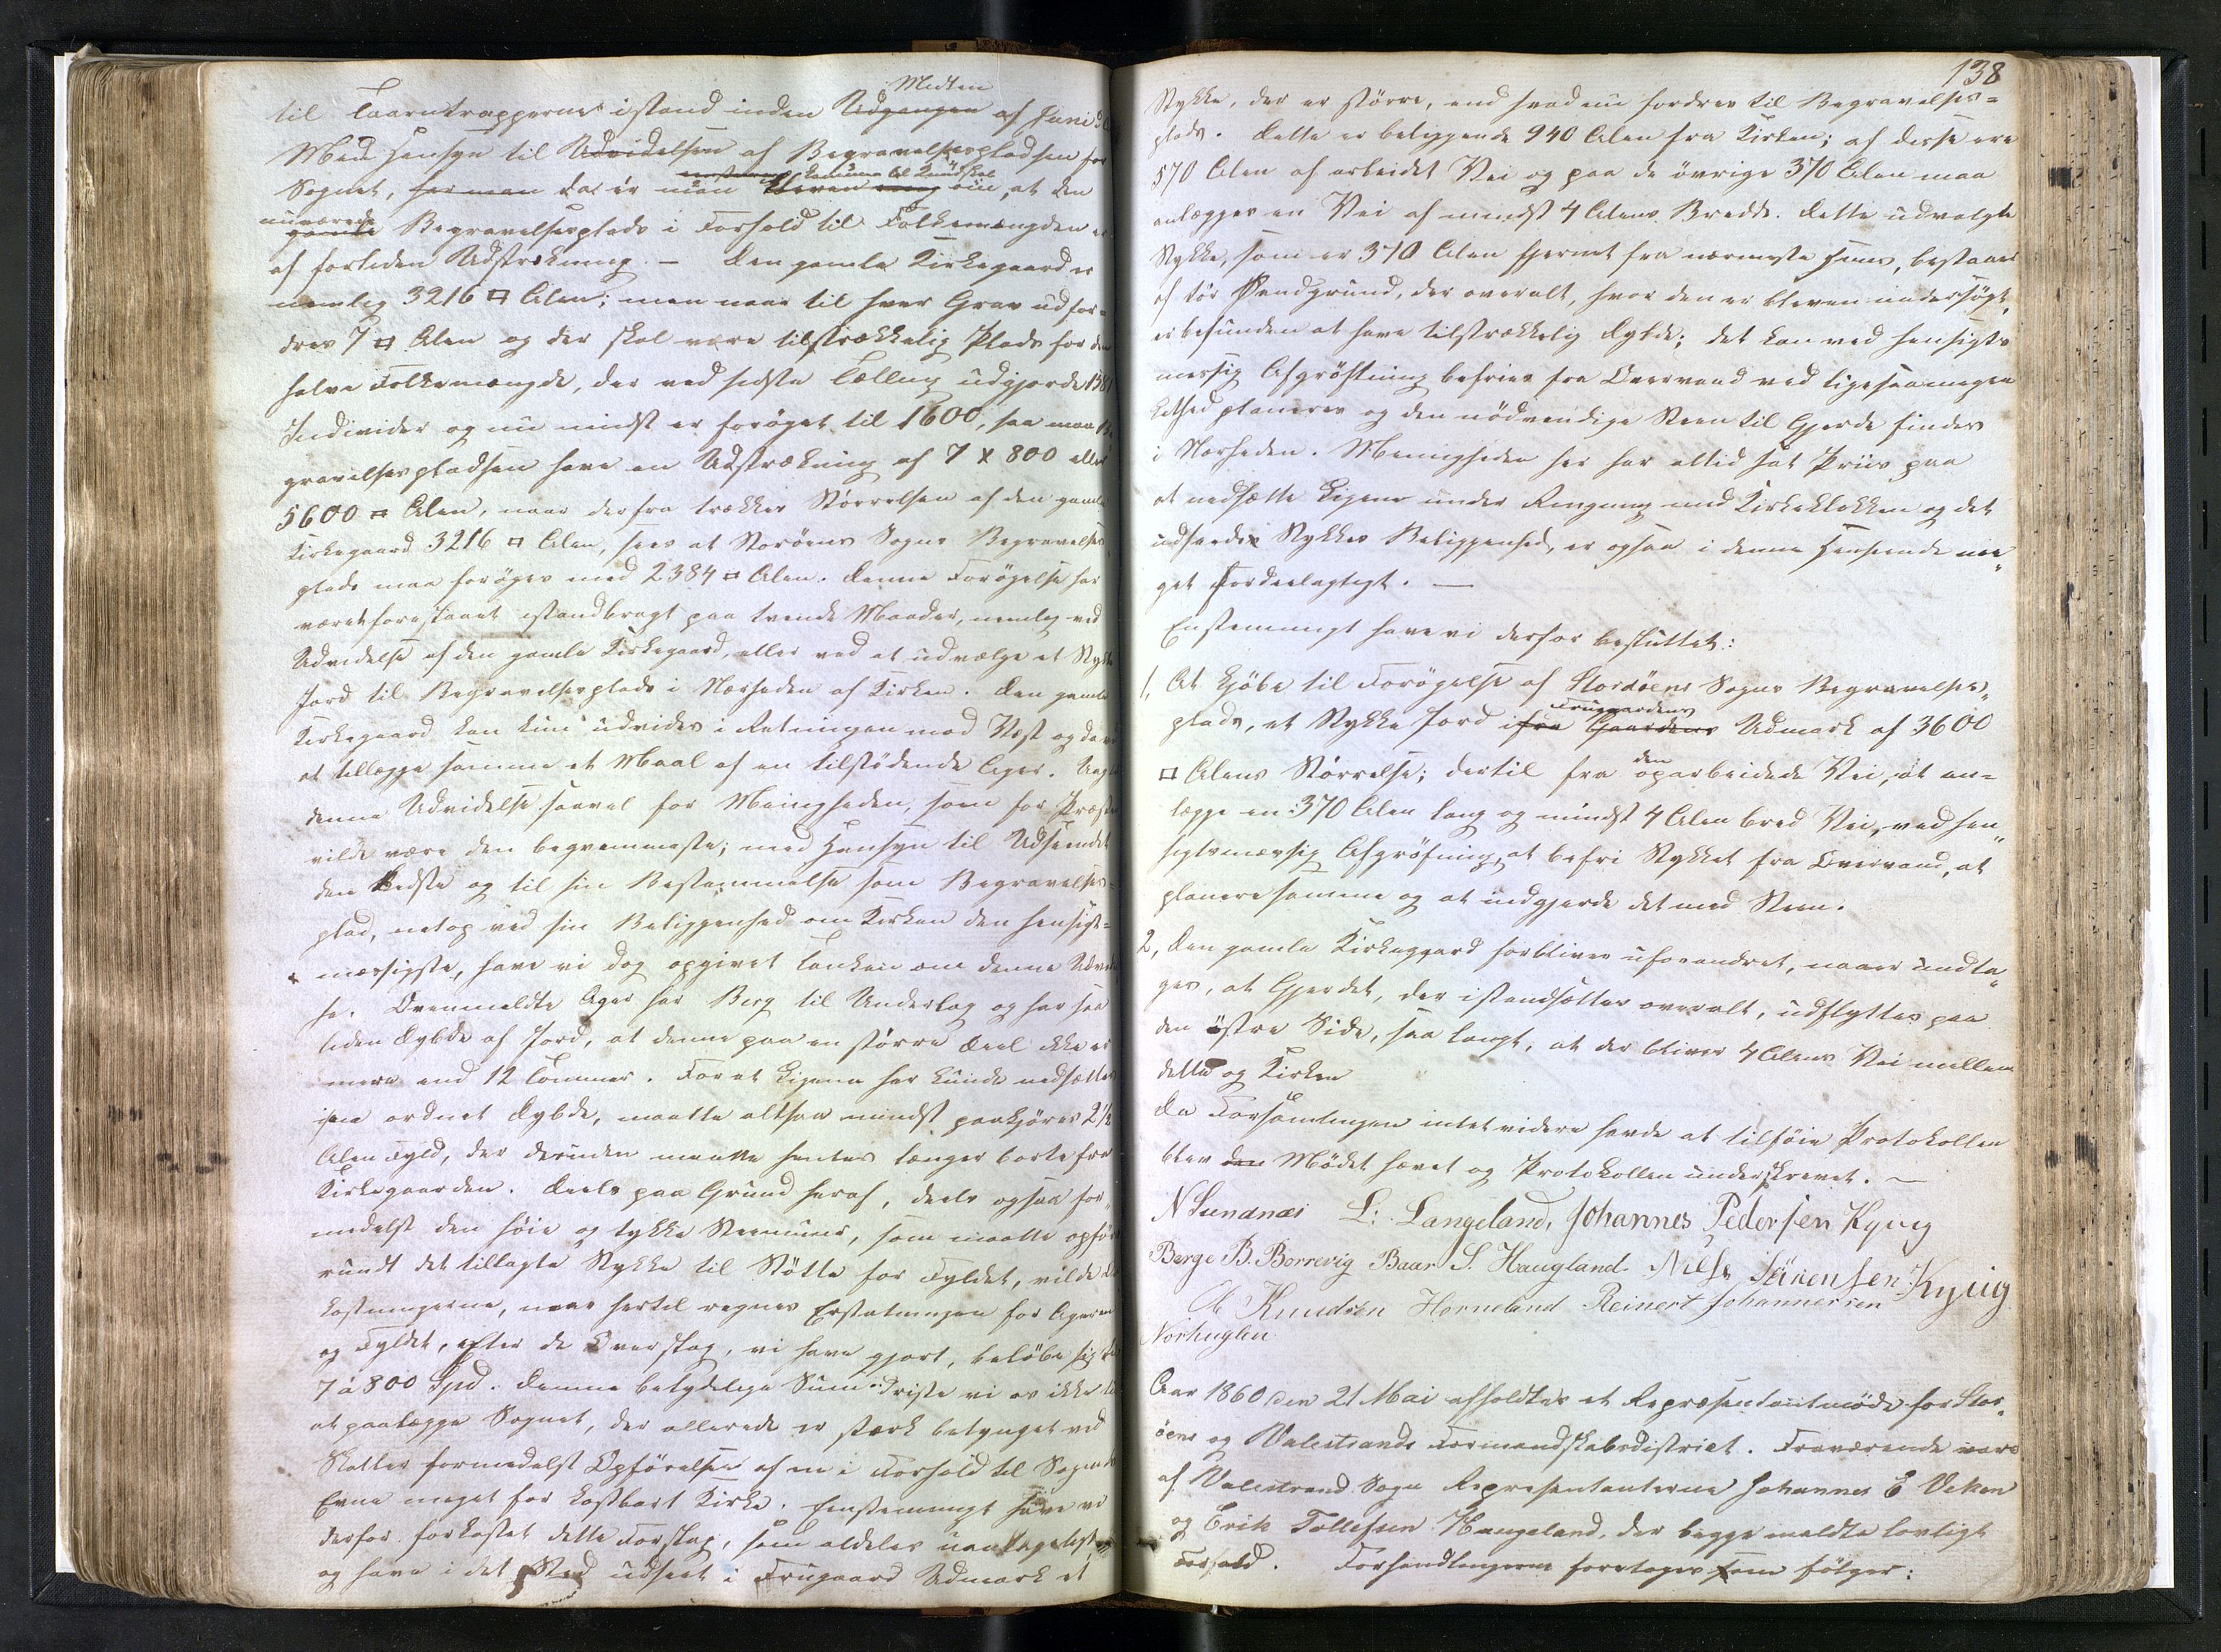 Midten
til Taarntrapperne istand inden Udgangen af Juni
Med Hensyn til Udvidelsen af Begravelsespladsen for
Sognet, har man da er man bleven enig om, at den
nuværende
gamle Begravelsesplads i Forhold til Folkemængden er
af forliden Udstrækning. – Den gamle Kirkegaard er
nemlig 3216 □ Alen; men naar til hver Grav udfor=
dres 7 □ Alen og der skal være tilstrækkelig Plads for den
halve Folkemængde, der ved sidste Tælling udgjorde
Individer og nu mindst er forøget til 1600, saa maa Be
gravelsespladsen have en Udstrækning af 7 x 800 eller
5600 □ Alen, naar derfra trækkes Størrelsen af den gamle
Kirkegaard 3216 □ Alen, sees at Storøens Sogns Begravelses
plads maa forøges med 2384 □ Alen. Denne Forøgelse har
været foreslaaet istandbragt paa tvende Maader, nemlig ved
Udvidelse af den gamle Kirkegaard, eller ved at udvælge et Stykke
Jord til Begravelsesplads i Nærheden af Kirken. Den gamle
Kirkegaard kan kun udvides i Retningen mod Vest og da ved
at tillægge samme et Maal af en tilstødende Ager.
denne Udvidelse saavel for Menigheden, som for Præsten
vilde være den beqvemmeste; med Hensyn til Udseendet
den bedste og til sin Bestemmelse som Begravelses=
plads, netop ved sin Beliggenhed om Kirken den hensigts=
mæssigste, have vi dog opgivet Tanken om denne Udvidel
se. Ovenmeldte Ager har Berg til Underlag og har saa
liden Dybde af Jord, at denne paa en større Deel ikke er
mere end 12 Tommer. For at Ligene her kunde nedsættes
i sin ordnet Dybde, maatte altsaa mindst paakjøres 2½
Alen Fyld, der desuden maatte hentes længer borte fra
Kirkegaarden. Deels paa Grund heraf, deels ogsaa for„
medelst den høie og tykke Steenmuur, som maatte opføres
rundt det tillagte Stykke til Støtte for Fyldet, vilde
Kostningerne, naar hertil regnes Erstatningen for Ageren
og Fyldet, efter de Overslag, vi have gjort, beløbe sig til
7 à 800 Spd. Denne betydelige Sum driste vi os ikke til
at paalægge Sognet, der allerede er stærk betynget ved
Skatter formedelst Opførelsen af en i Forhold til Sognets
Evne meget for kostbart Kirke. Eenstemmigt have vi
derfor forkastet dette Forslag, som aldeles uantageligt
og have i det Sted udseet i Frugaard Udmark et
138
Stykke, der er større, end hvad nu fordres til Begravelses=
plads. Dette er beliggende 940 Alen fra Kirken; af disse ere
570 Alen af arbeidet Vei og paa de øvrige 370 Alen maa
anlægges en Vei af mindst 4 Alens Bredde. Dette udvalgte
Stykke, som er 370 Alen fjernet fra nærmeste Huus, bestaaer
af tør Sandgrund, der overalt, hvor den er bleven undersøgt,
er befunden at have tilstrækkelig Dybde; det kan ved hensigts
mæssig Afgrøftning befries fra Overvand ved ligesaamegen
Lethed planeres og den nødvendige Steen til Gjerde findes
i Nærheden. Menigheden her har altid sat Priis paa
at nedsætte Ligene under Ringning med Kirkeklokken og det
udseede Stykkes Beliggenhed, er ogsaa i denne Henseende me„
get fordeelagtigt. —
Enstemmigt have vi derfor besluttet:
1, At kjøbe til Forøgelse af Stordøens Sogns Begravelses„
Frugaardens
plads, et Stykke Jord i fra Gaardens Udmark af 3600
□ Alens Størrelse; dertil fra den oparbeidede Vei, at an=
lægge en 370 Alen lang og mindst 4 Alen bred Vei, ved hen„
sigtsmæssig Afgrøfning, at befri Stykket fra Overvand, at
planere samme og at indgjerde det med Steen.
2, Den gamle Kirkegaard forbliver uforandret, naar undta„
ges, at Gjerdet, der istandsættes overalt, udflyttes paa
den østre Side, saa langt, at der bliver 4 Alens Vei mellem
dette og Kirken
Da Forsamlingen intet videre havde at tilføie Protokollen
blev den Mødet hævet og Protokollen underskrevet. —
N Sundnæs L: Langeland, Johannes Pedersen Kyvig
Børge B. Borrevig Baar S. Haugland. Nels Sørensen Kyvig
O Knudsen Horneland Reinert Johannessen
Norhuglen
Aar 1860 den 21 Mai afholdtes et Repræsentantmøde for Stor„
øens og Valestrands Formandskabsdistrict. Fraværende vare
af Valestrand Sogn Repræsentanterne Johannes E Veken
og Erik Tollefsen Haugeland, der begge meldte lovligt
Forfald. Forhandlingerne foretoges som følger: